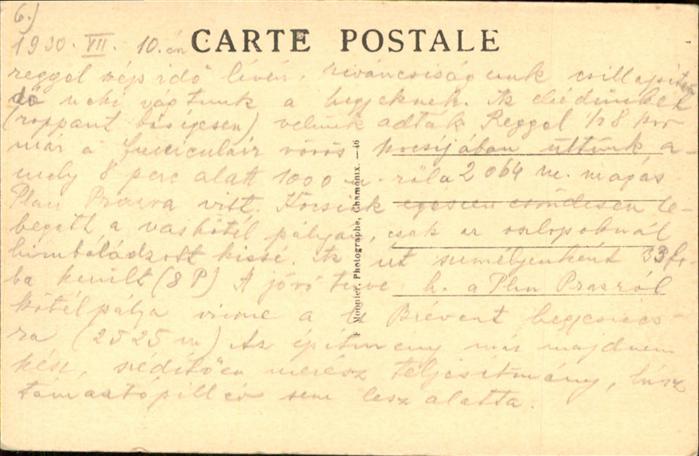 6.)
CARTE POSTALE
1930. VII. 10.én
reggel szép idő lévén, kiváncsiságunk csillapítan
dó neki vágtunk a hegyeknek. Az ebédünket
(roppant bőségesen) velünk adták Reggel 1/2 8 kor
már a funiculair vörös kocsijában ültünk a-
mely 8 perc alatt 1000 m. ről a 2064 m. magas
Plan Praz ra vitt. Kocsink egészen csöndesen le-
begett a vaskötél pályán, csak az oszlopoknál
himbálódzott kissé. Az út személyenként 33 fr.-
ba került (8 P) A jövő terve h. a Plan Prazról
kötélpálya vinne a Brévent hegycsúcs-
ra (2525 m) Az építmény már majdnem
kész, szédítően merész teljesítmény, húsz
támasztópillér sem lesz alatta.
Monnier, Photographe, Chamonix. — 46